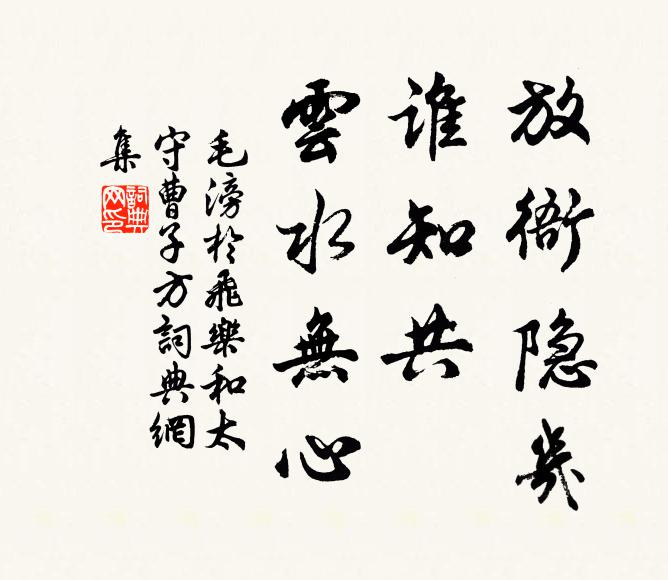 放衙隐几
谁知共
雲水無心
毛滂於飛樂和太
守曹子方詞典網
集
詞典
网印